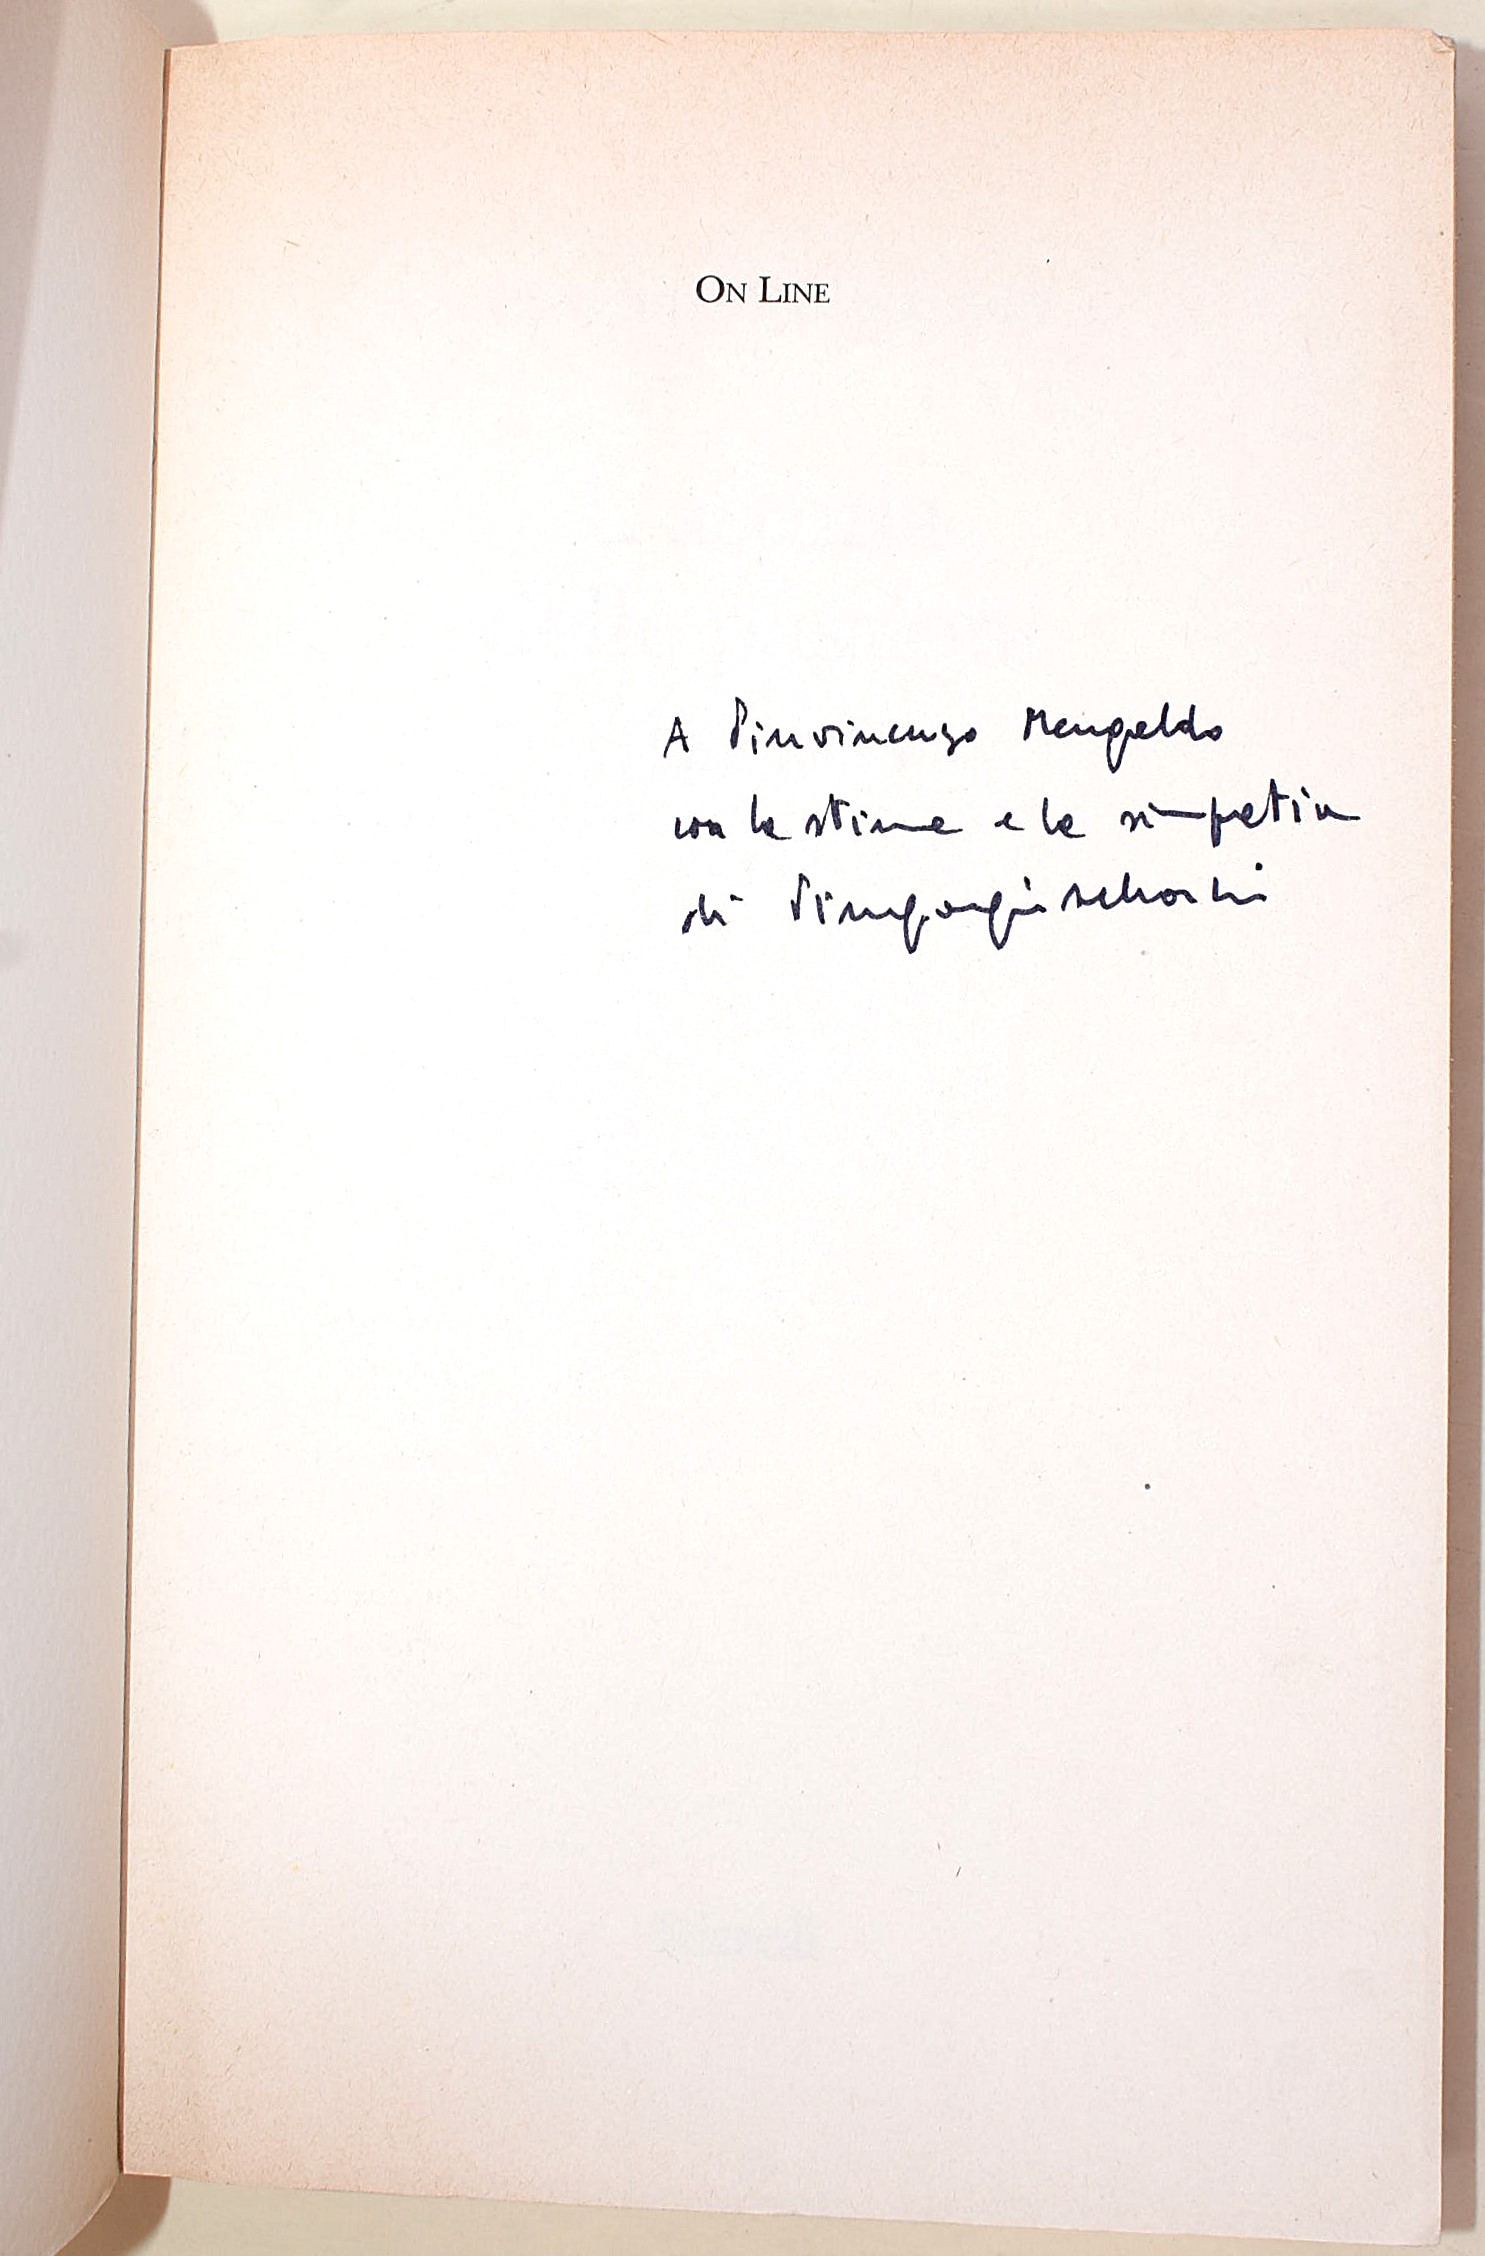 ON LINE
A Piervincenzo Mengaldo
con la stima e la simpatia
di Piergiorgio